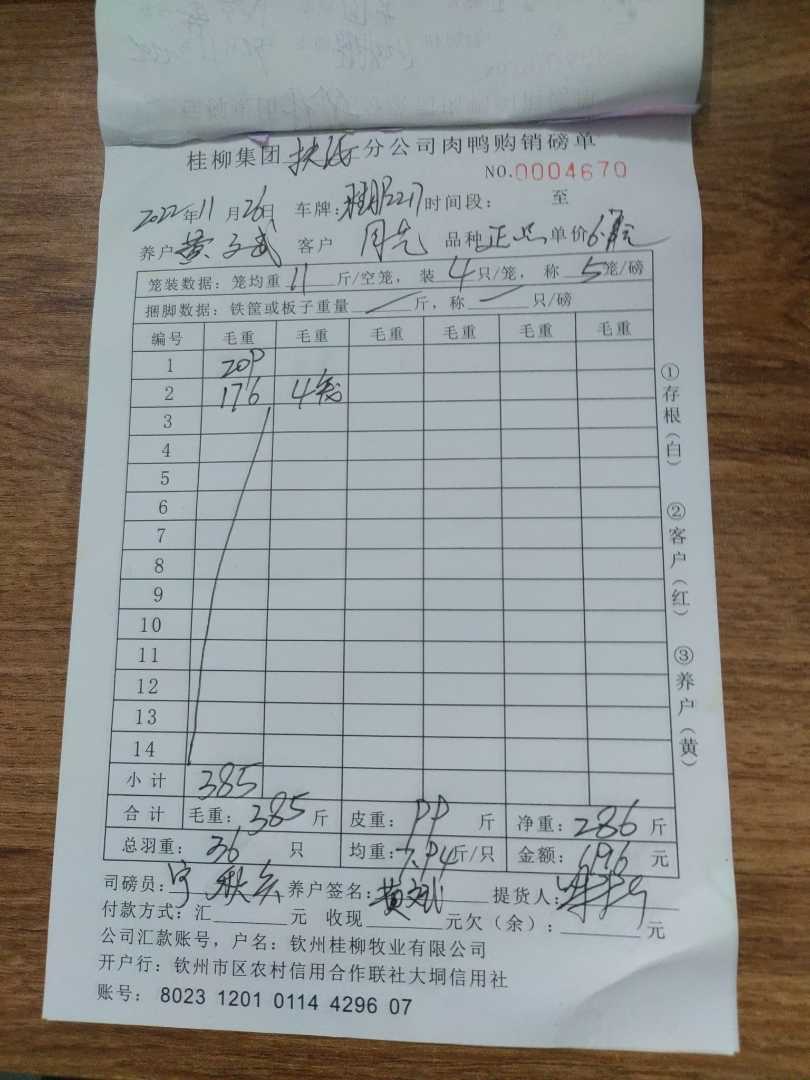 桂柳集团 扶 分公司肉鸭购销磅单
NO.0004670
2022年11月26日 车牌: 227 时间段: 至
养户 黄子武 客户 月先 品种 正 单价
笼装数据: 笼均重 11 斤/空笼, 装 4 只/笼, 称 5 笼/磅
捆脚数据: 铁筐或板子重量 斤, 称 只/磅
编号 毛重 毛重 毛重 毛重 毛重 毛重
1 209
2 176 4笼
3
4
5
6
7
8
9
10
11
12
13
14
小计 385
合计 毛重: 385 斤 皮重: 99 斤 净重: 286 斤
总羽重: 36 只 均重: 7.94 斤/只 金额: 元
司磅员: 养户签名: 黄 提货人:
付款方式: 汇 元 收现 元欠(余): 元
公司汇款账号, 户名: 钦州桂柳牧业有限公司
开户行: 钦州市区农村信用合作联社大垌信用社
账号: 8023 1201 0114 4296 07
①存根(白) ②客户(红) ③养户(黄)